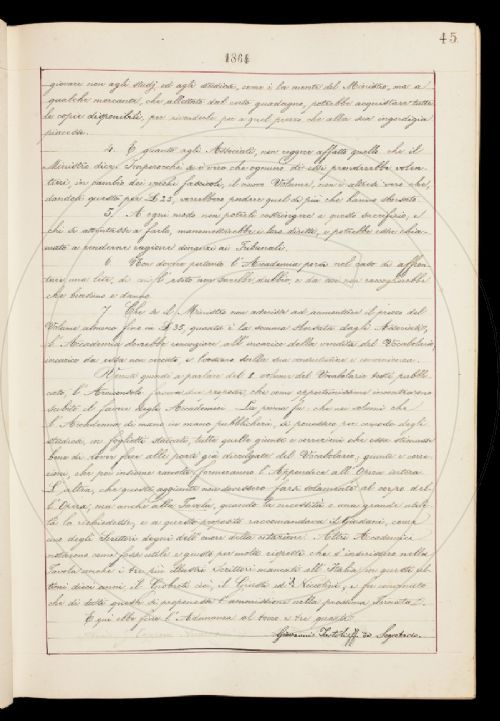 45
1864
giovare non agli studj ed agli studiosi, come è la mente del Ministro, ma a
qualche mercante, che allettato dal certo guadagno, potrebbe acquistare tutte
le copie disponibili, per rivenderle poi a quel prezzo che alla sua ingordigia
piacesse.
4. E quanto agli Associati, non reggere affatto quello che il
Ministro dice. Imperocchè se è vero che ognuno di essi prenderebbe volen-
tieri, in cambio dei vecchi fascicoli, il nuovo Volume, non è altresì vero che,
dandosi questo per £ 25, vorrebbero perdere quel di più che hanno sborsato.
5. A ogni modo non poterli costringere a questo sacrifizio, e
che si attentasse a farlo, manometterebbe i loro diritti, e potrebbe esser chia-
mato a renderne ragione dinanzi ai Tribunali.
6. Non dovere pertanto l'Accademia porsi nel caso di affron-
tare una lite, di cui l'esito non sarebbe dubbio, e da cui non raccoglierebbe
che biasimo e danno.
7. Che se il Ministro non aderisse ad aumentare il prezzo del
Volume almeno fino in £ 35, quanto è la somma sborsata dagli Associati,
l'Accademia dovrebbe rinunziare all'incarico della vendita del Vocabolario,
incarico da essa non cercato, e contrario
Venuti quindi a parlare del 1. volume del Vocabolario testè pubbli-
cato, l'Arciconsolo faceva due proposte, che come opportunissime incontrarono
subito il favore degli Accademici. La prima fu, che nei volumi che
l'Accademia di mano in mano pubblicherà, si ponessero per comodo degli
studiosi, in foglietti staccati, tutte quelle giunte e correzioni che essa stimasse
bene di dover fare alle parti già divulgate del Vocabolario; giunte e corre-
zioni, che poi insieme raccolte formeranno l'Appendice all'Opera intera.
L'altra, che queste aggiunte non dovessero farsi solamente al corpo del-
l'Opera, ma anche alla Tavola, quando la necessità o una grande utili-
tà lo richiedesse; e a questo proposito raccomandava il Giuliani, come
uno degli Scrittori degni dell'onore della citazione. Altri Accademici
notarono come fosse utile e giusto per molti rispetti che s'inserissero nella
Tavola anche i tre più illustri Scrittori mancati all'Italia in questi ul-
timi dieci anni, il Gioberti cioè, il Giusti ed il Niccolini, e fu convenuto
che di tutti questi si proponesse l'ammissione nella prossima Tornata.
E qui ebbe fine l'Adunanza al tocco e tre quarti.
Giovanni Tortoli ff. di Segretario.